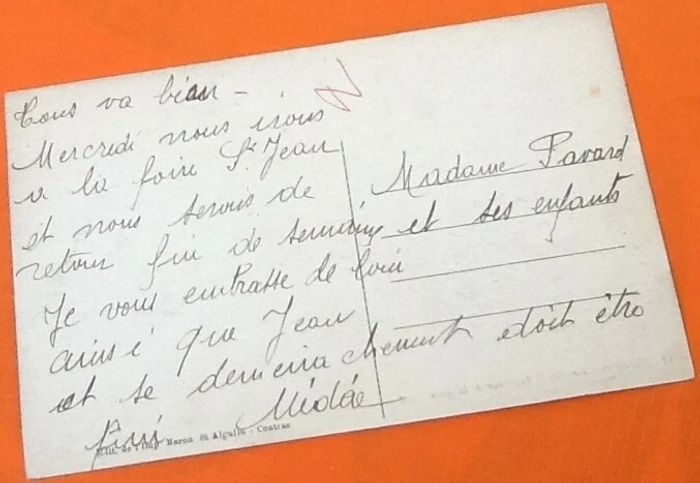 Tous va bien -
Mercredi nous irons
a la foire St Jean
et nous serons de
retour fin de semaine
Je vous embrasse de loin
ainsi que Jean
et se demenachement doit être
fini Médée
Madame Pavard
et ses enfants
Edit. de l'Imp Baron St Aigulin - Coutras